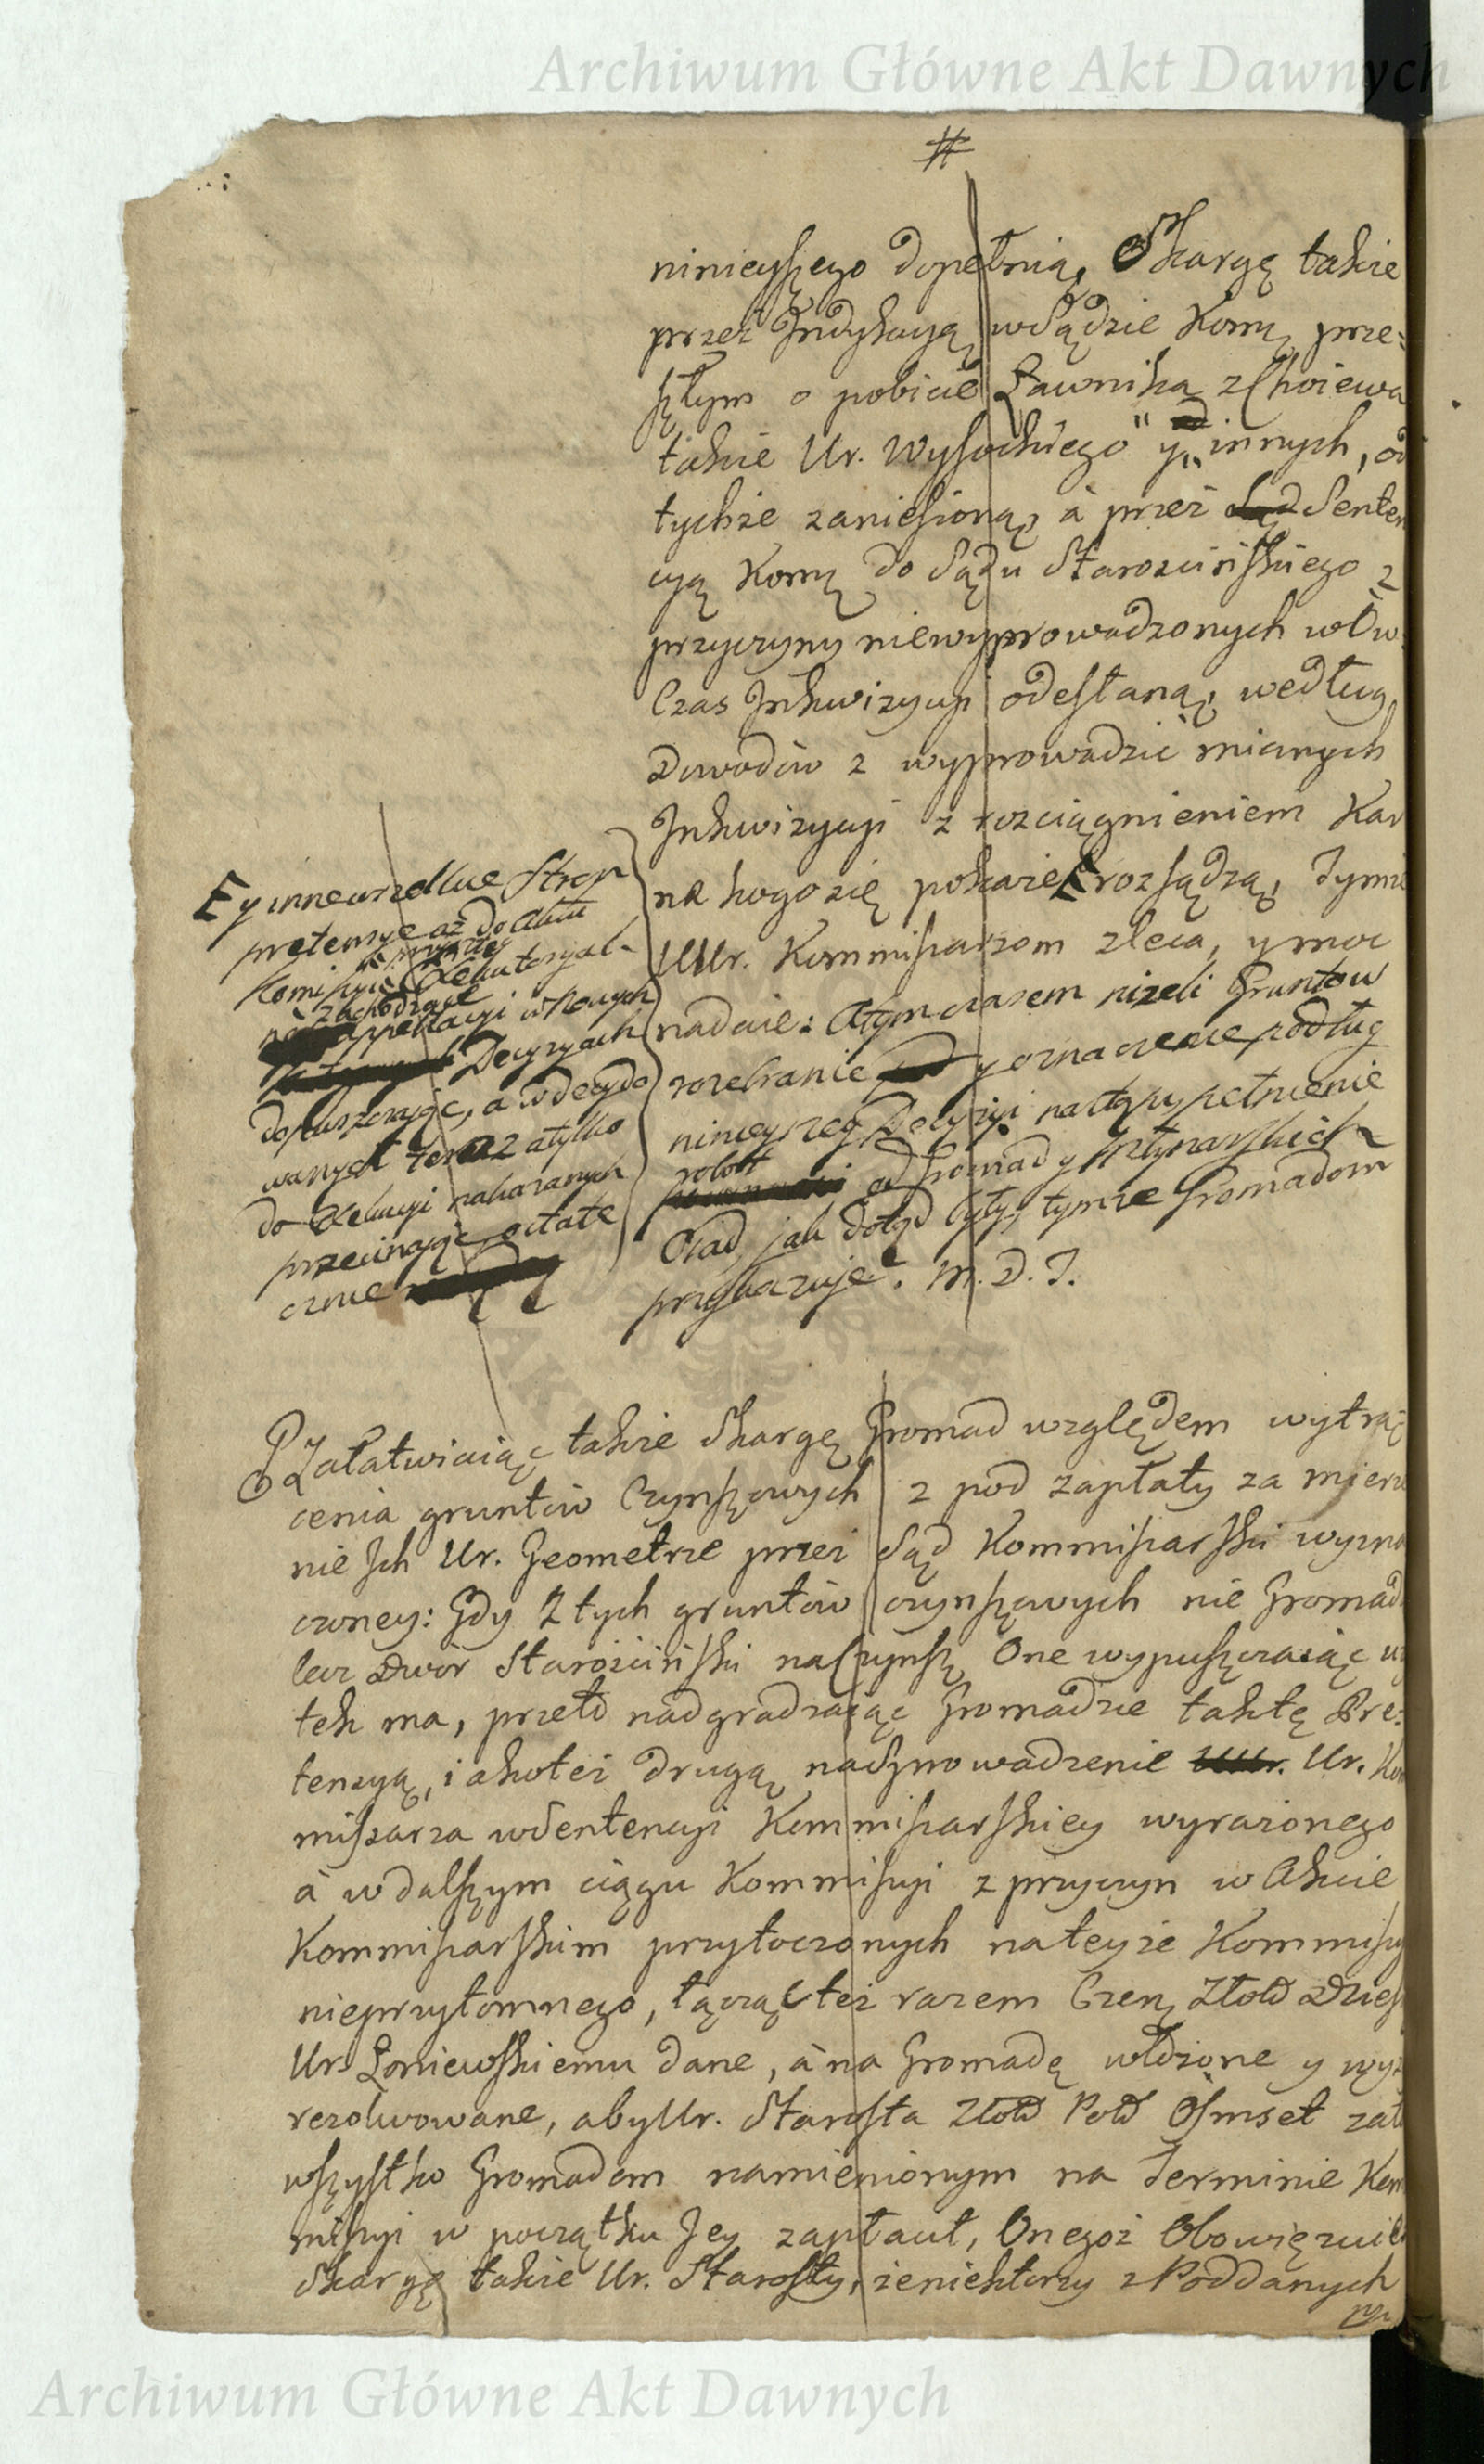 Archiwum Główne Akt Dawnych
#
ninieyszego dopełnią, Skargę także
przez Indykacyą w Sądzie Komỹ prze:
szłym o pobicie Ławnika z Choiewa
także Ur. Wysockiego y innych, od
tychże zaniesioną, à przez Senten
cyą Komỹ do Sądu Starościńskiego z
przyczyny niewyprowadzonych wÓw
Czas Inkwizycyi odesłaną, według
Dowodów z wyprowadzić mianych
Inkwizycyi z rozciągnieniem Kar
na kogo się pokaże rozsądzą, Tymże
UUr. Kommissarzom zleca, y moc
nadaie: A tym czasem niżeli Gruntow
rozebranie y oznaczenie podług
ninieyszeg Decyzyi nastąpi, pełnienie
robot od Gromad y Młynarskich
Osad, jak dotąd były, tymże Gromadom
przykazuje. M. D. J.
E y inne wszelkie Stron
pretensye aż do Aktu
Komissyi przeszłey Exekutoryal
zachodzące
appellacyi w Nowych
Decyzyach
dopuszczając, a w decydo
wanych teraz a tylko
do Exekucyi nakazanych
przecinając ostate
cznie
Załatwiaiąc także Skargę Gromad względem wytrą
cenia gruntów Czynszowych z pod zapłaty za mierze
nie Ich Ur. Geometrze przez Sąd Kommissarski wyzna
czoney: Gdy z tych gruntów czynszowych nie Gromada
lecz Dwór Starościński na Czynsz One wypuszczaiąc uży
tek ma, przeto nadgradzaiąc Gromadzie takżę Pre:
tensyą, iako też drugą na sprowadzenie Ur. Kom
missarza w Sentencyi Kommissarskiey wyrażonego
à w dalszym ciągu Kommissyi z przyczyn w Akcie
Kommissarskim przytoczonych na teyże Kommissyi
nieprzytomnego, łącząc też razem Czer. Złotd Dzies
Ur. Łoniewskiemu dane, à na Gromadę włożone y wyż
rezolwowane, aby Ur. Starosta Złotd Pold Ośmset za to
wszystko Gromadom namienionym na Terminie Kom
missyi w początku Jey zapłacił, Onegoż Obowięzuie
Skargę także Ur. Starosty, że niektórzy z Poddanych
Archiwum Główne Akt Dawnych